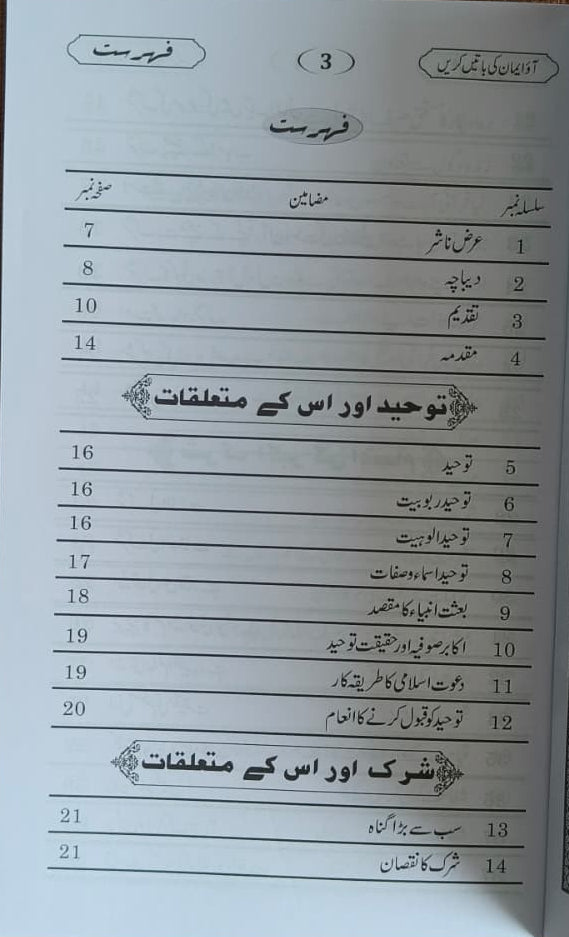 آؤ ایمان کی باتیں کریں 3 فہرست
فہرست
سلسلہ نمبر مضامین صفحہ نمبر
1 عرض ناشر 7
2 دیباچہ 8
3 تقدیم 10
4 مقدمہ 14
توحید اور اس کے متعلقات
5 توحید 16
6 توحید ربوبیت 16
7 توحید الوہیت 16
8 توحید اسماء وصفات 17
9 بعثت انبیاء کا مقصد 18
10 اکابر صوفیہ اور حقیقت توحید 19
11 دعوت اسلامی کا طریقہ کار 19
12 توحید کو قبول کرنے کا انعام 20
شرک اور اس کے متعلقات
13 سب سے بڑا گناہ 21
14 شرک کا نقصان 21